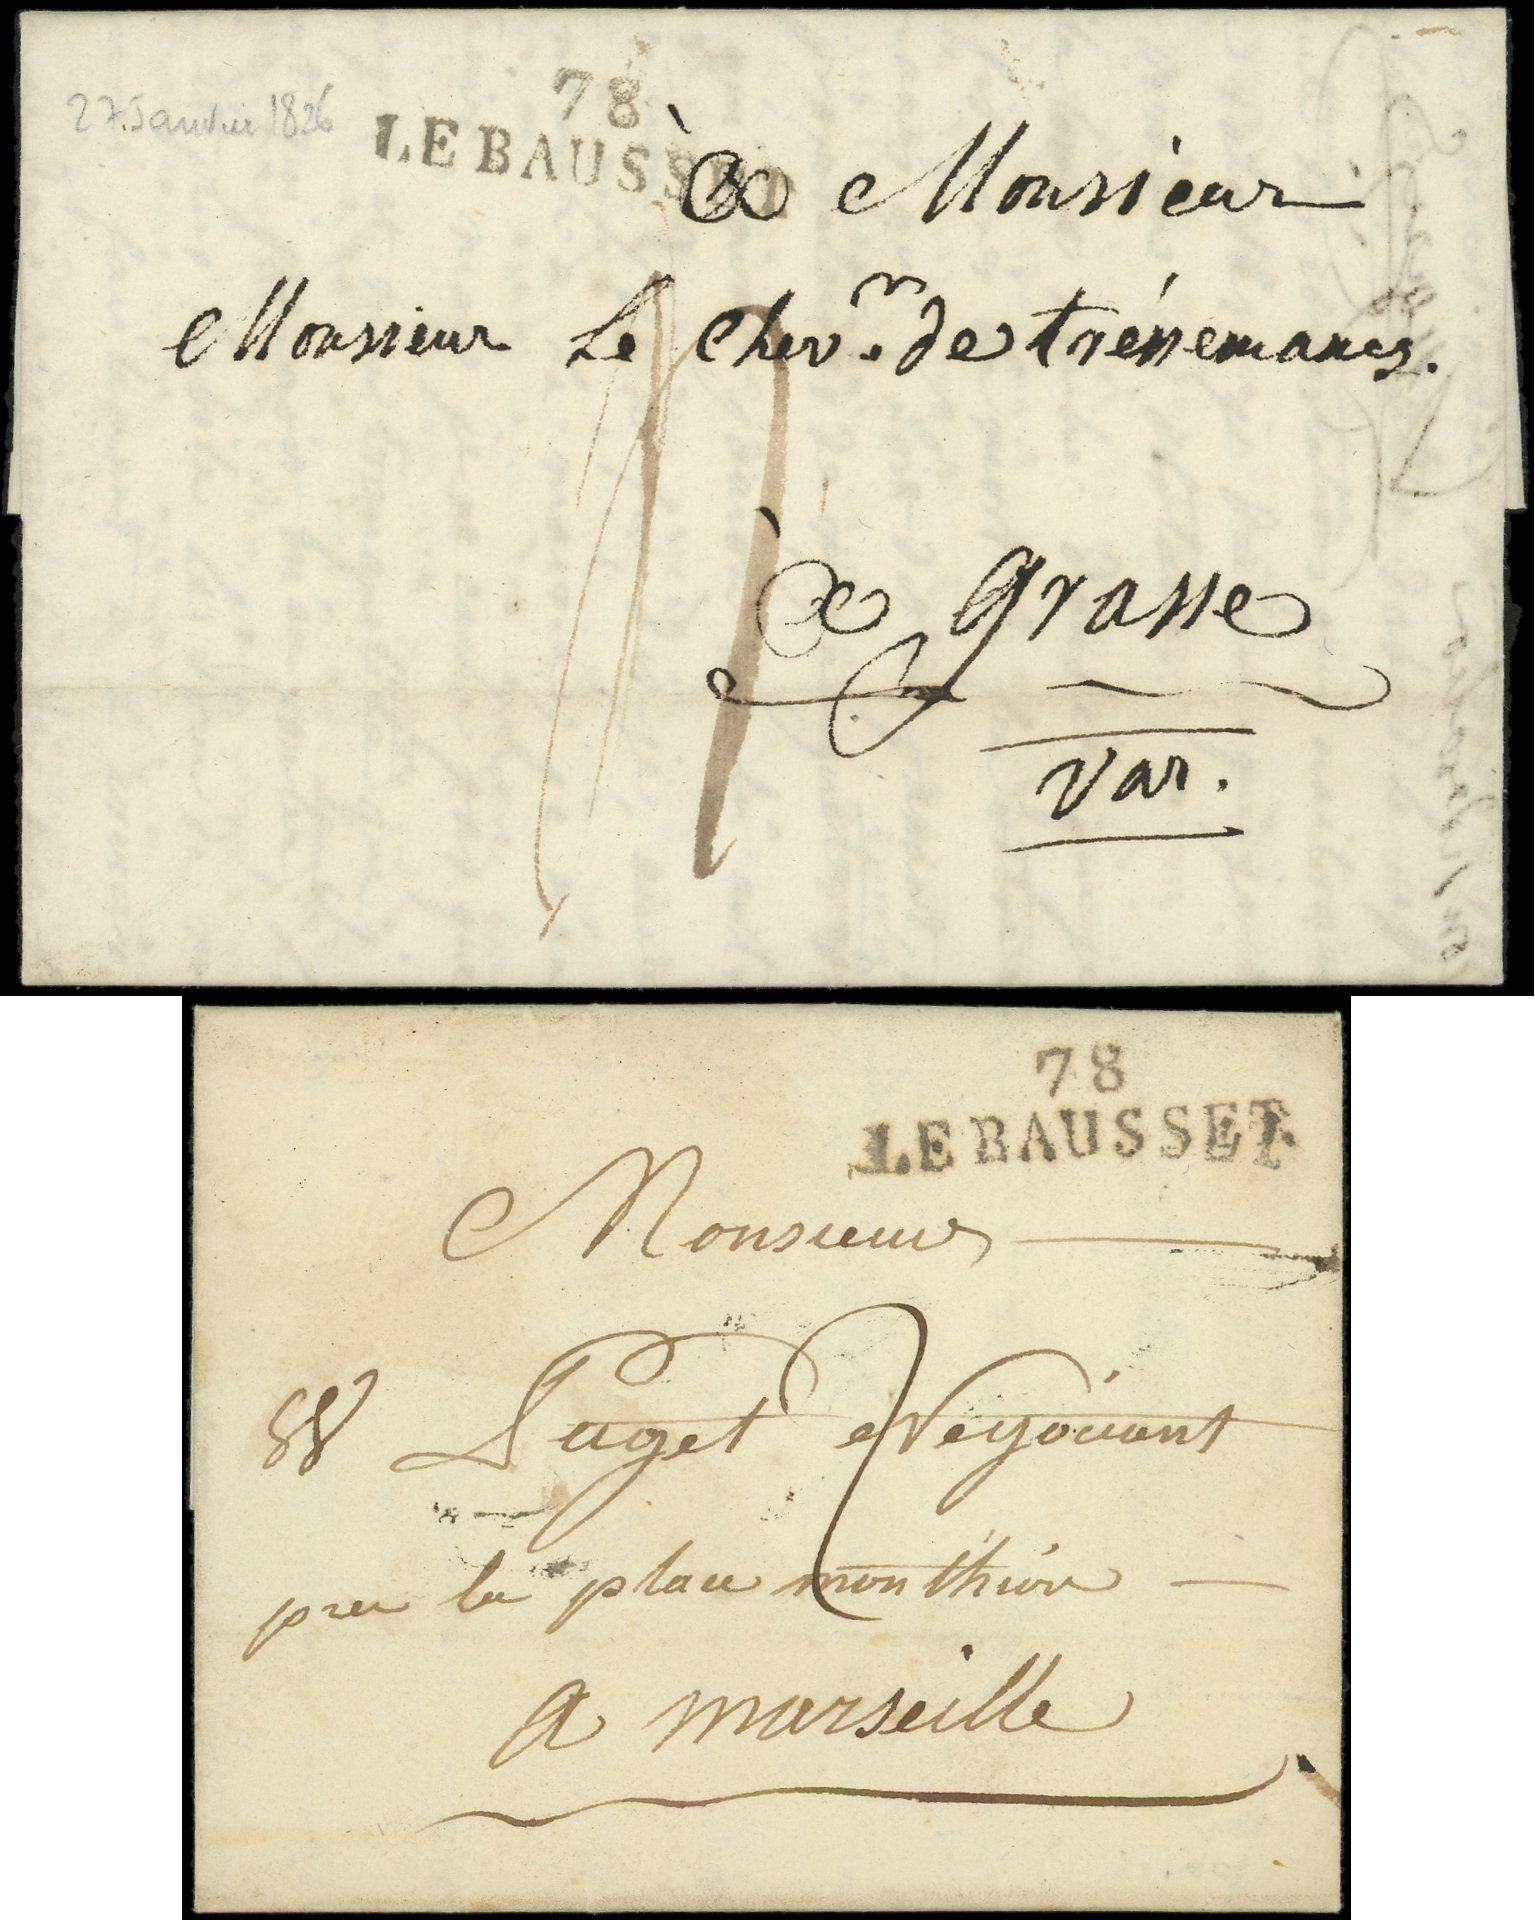 27 Janvier 1826
78
LE BAUSSET
à Monsieur
Monsieur Le Chev.r de trénemancs.
à Grasse
Var.
78
LE BAUSSET
Monsieur
Puget Negociant
pres la place
a marseille